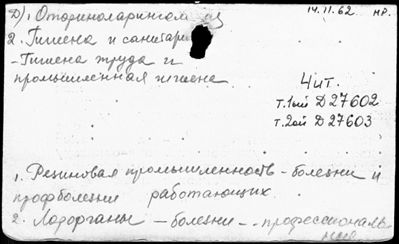 Д) 1. Оториноларингология 14.11.62 НР.
2. Гигиена и санитария
- Гигиена труда и
промышленная гигиена
Чит.
т.1ый Д 27602
т.2ой Д 27603
1. Резиновая промышленность - болезни и
профболезни работающих.
2. Лорорганы - болезни - профессиональ